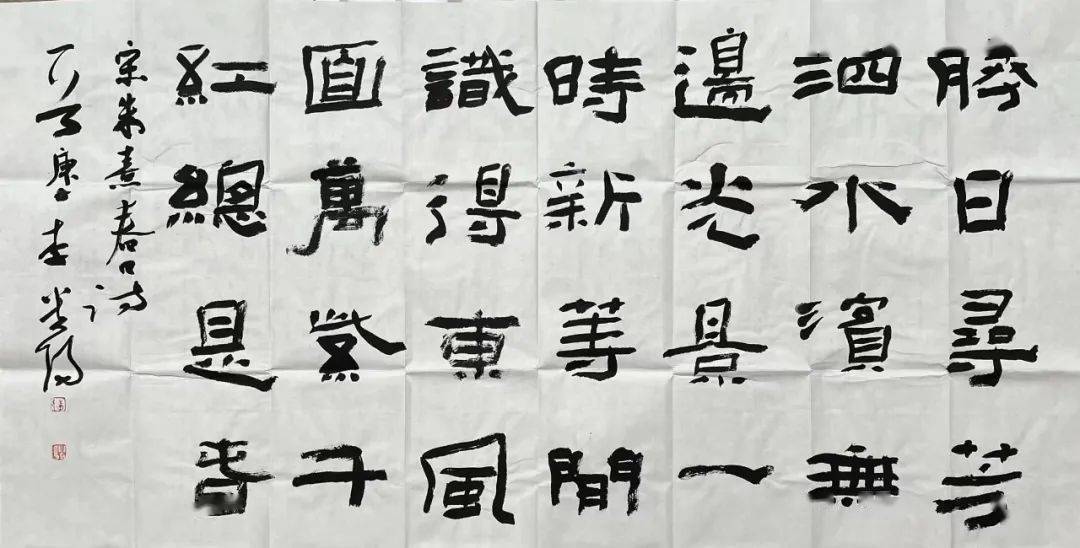 勝日尋芳
泗水濱無
邊光景一
時新等閒
識得東風
面萬紫千
紅總是春
宋朱熹春日詩
庚李陽